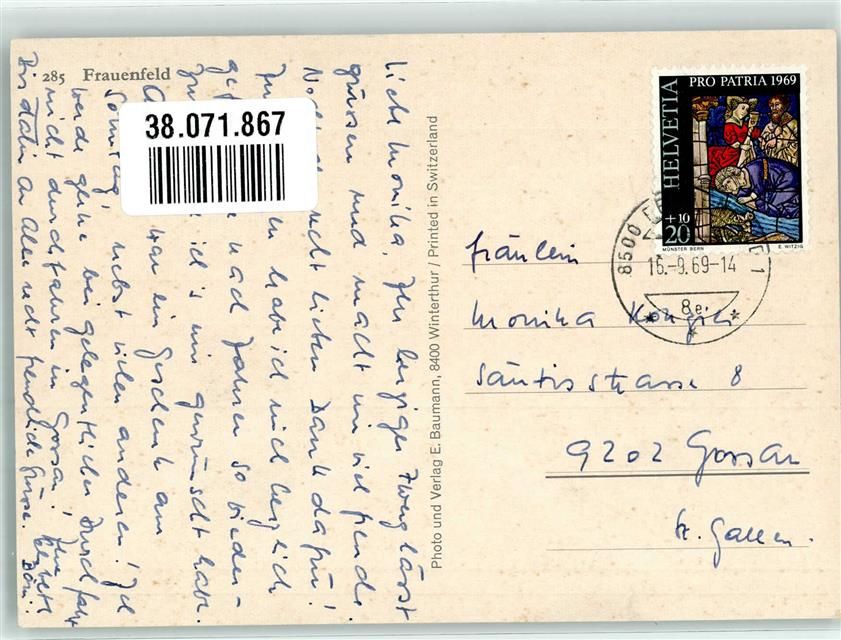 285 Frauenfeld
38.071.867
Liebe Monika, Ihr herziger Zwerg lässt
grüssen und macht mir viel Freude.
Nochmals recht lieben Dank dafür!
habe ich mich herzlich
nach Jahren so wieder-
ich's mir gewünscht habe.
war ein Geschenk am
Sonntag, nebst vielen anderen! Ich
werde gerne bei gelegentlicher Durchfahrt
nicht durchfahren in Gossau! Ihre
Bis dahin an Alle recht freundliche Grüsse. Elsbeth
Photo und Verlag E. Baumann, 8400 Winterthur / Printed in Switzerland
HELVETIA
PRO PATRIA 1969
+10
20
MÜNSTER BERN
E. WITZIG
8500
16.-9.69-14
1
8e
Fräulein
Monika
Säntisstrasse 8
9202 Gossau
St. Gallen.